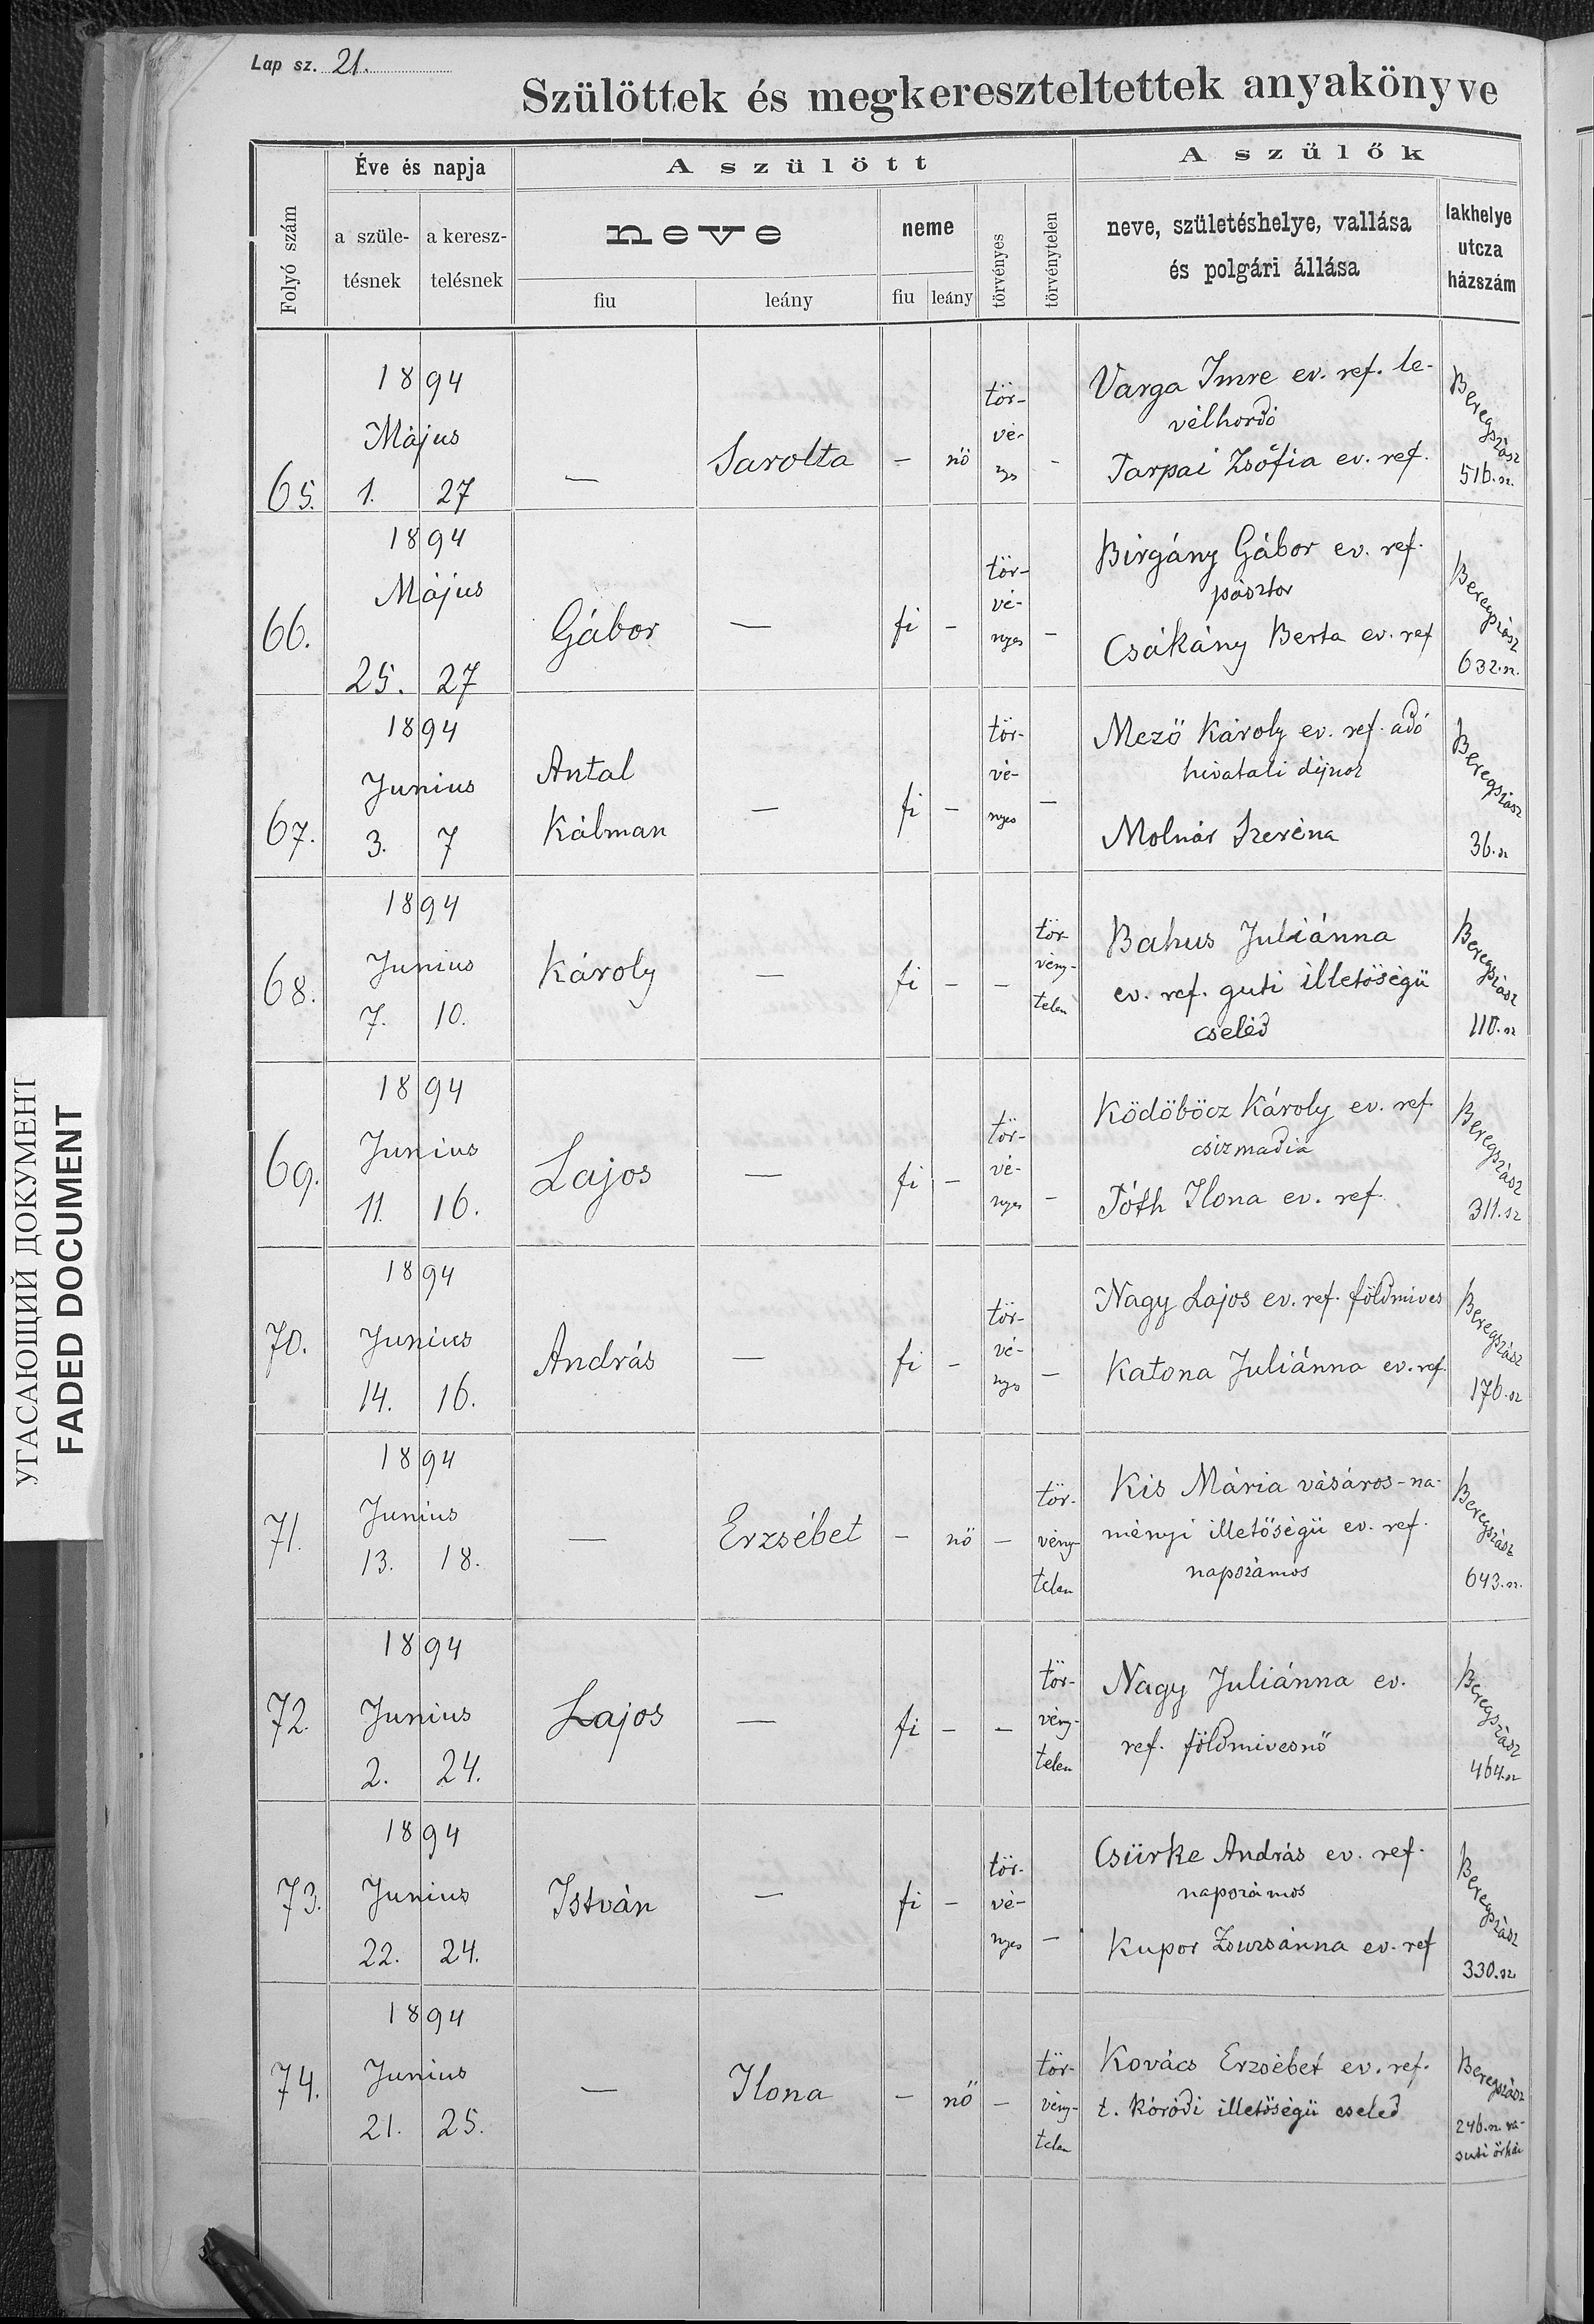 Lap sz. 21.
Szülöttek és megkereszteltettek anyakönyve
Folyó szám
Éve és napja
a születésnek
a keresztelésnek
A szülött
neve
fiu
leány
neme
fiu
leány
törvényes
törvénytelen
A szülők
neve, születéshelye, vallása
és polgári állása
lakhelye
utcza
házszám
65. 1894 Május 1. 27 — Sarolta - nő törvényes -
Varga Imre ev. ref. le-
vélhordó
Tarpai Zsófia ev. ref.
Beregszász
516. sz.
66. 1894 Május 25. 27 Gábor — fi - törvényes -
Birgány Gábor ev. ref.
pásztor
Csákány Berta ev. ref
Beregszász
632. sz.
67. 1894 Junius 3. 7 Antal Kálmán — fi - törvényes —
Mező Károly ev. ref. adó
hivatali dijnok
Molnár Szeréna
Beregszász
36. sz
68. 1894 Junius 7. 10. Károly — fi - - törvénytelen
Bahus Juliánna
ev. ref. guti illetőségü
cseléd
Beregszász
110. sz
69. 1894 Junius 11. 16. Lajos — fi - törvényes -
Ködöböcz Károly ev. ref.
csizmadia
Tóth Ilona ev. ref.
Beregszász
311. sz
70. 1894 Junius 14. 16. András — fi - törvényes —
Nagy Lajos ev. ref. földmives
Katona Juliánna ev. ref.
Beregszász
176. sz
71. 1894 Junius 13. 18. — Erzsébet - nő — törvénytelen
Kis Mária vásáros-na-
ményi illetőségü ev. ref.
napszámos
Beregszász
643. sz.
72. 1894 Junius 2. 24. Lajos — fi - - törvénytelen
Nagy Juliánna ev.
ref. földmivesnő
Beregszász
464. sz
73. 1894 Junius 22. 24. István — fi - törvényes —
Csürke András ev. ref.
napszámos
Kupor Zsuzsánna ev. ref
Beregszász
330. sz
74. 1894 Junius 21. 25. — Ilona - nő — törvénytelen
Kovács Erzsébet ev. ref.
t. kóródi illetőségü cseled
Beregszász
246. sz. va-
suti őrház
УГАСАЮЩИЙ ДОКУМЕНТ
FADED DOCUMENT